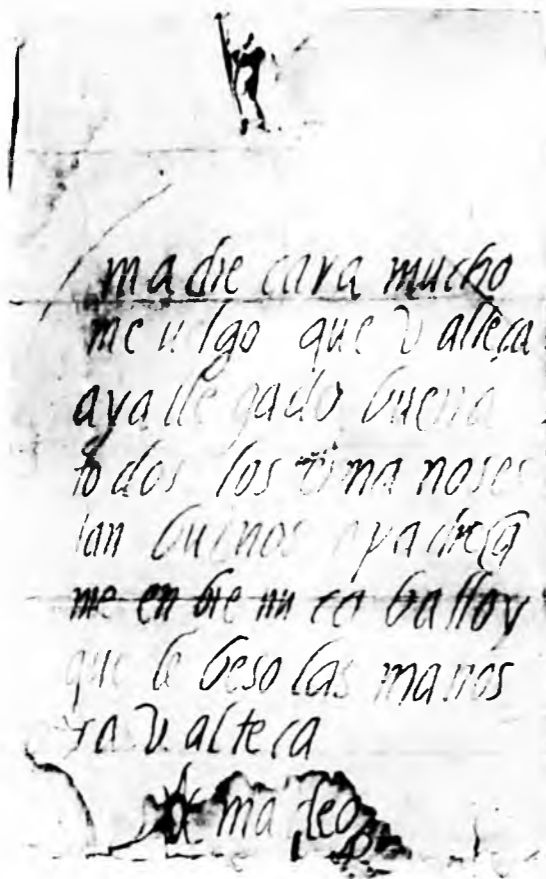 madre cara mucho
me uelgo que v alteça
aya lle gado buena
to dos los ermanos es
tan buenos a padre q
me en bie mi ca balloy
que le beso las manos
v. alteça
mateo